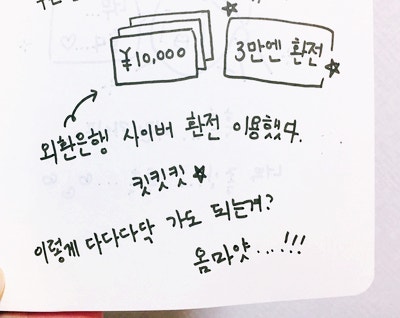 ¥10,000
3만엔 환전
외환은행 사이버 환전 이용했다.
킷킷킷
이렇게 다다다닥 가도 되는겨?
옴마얏.....!!!